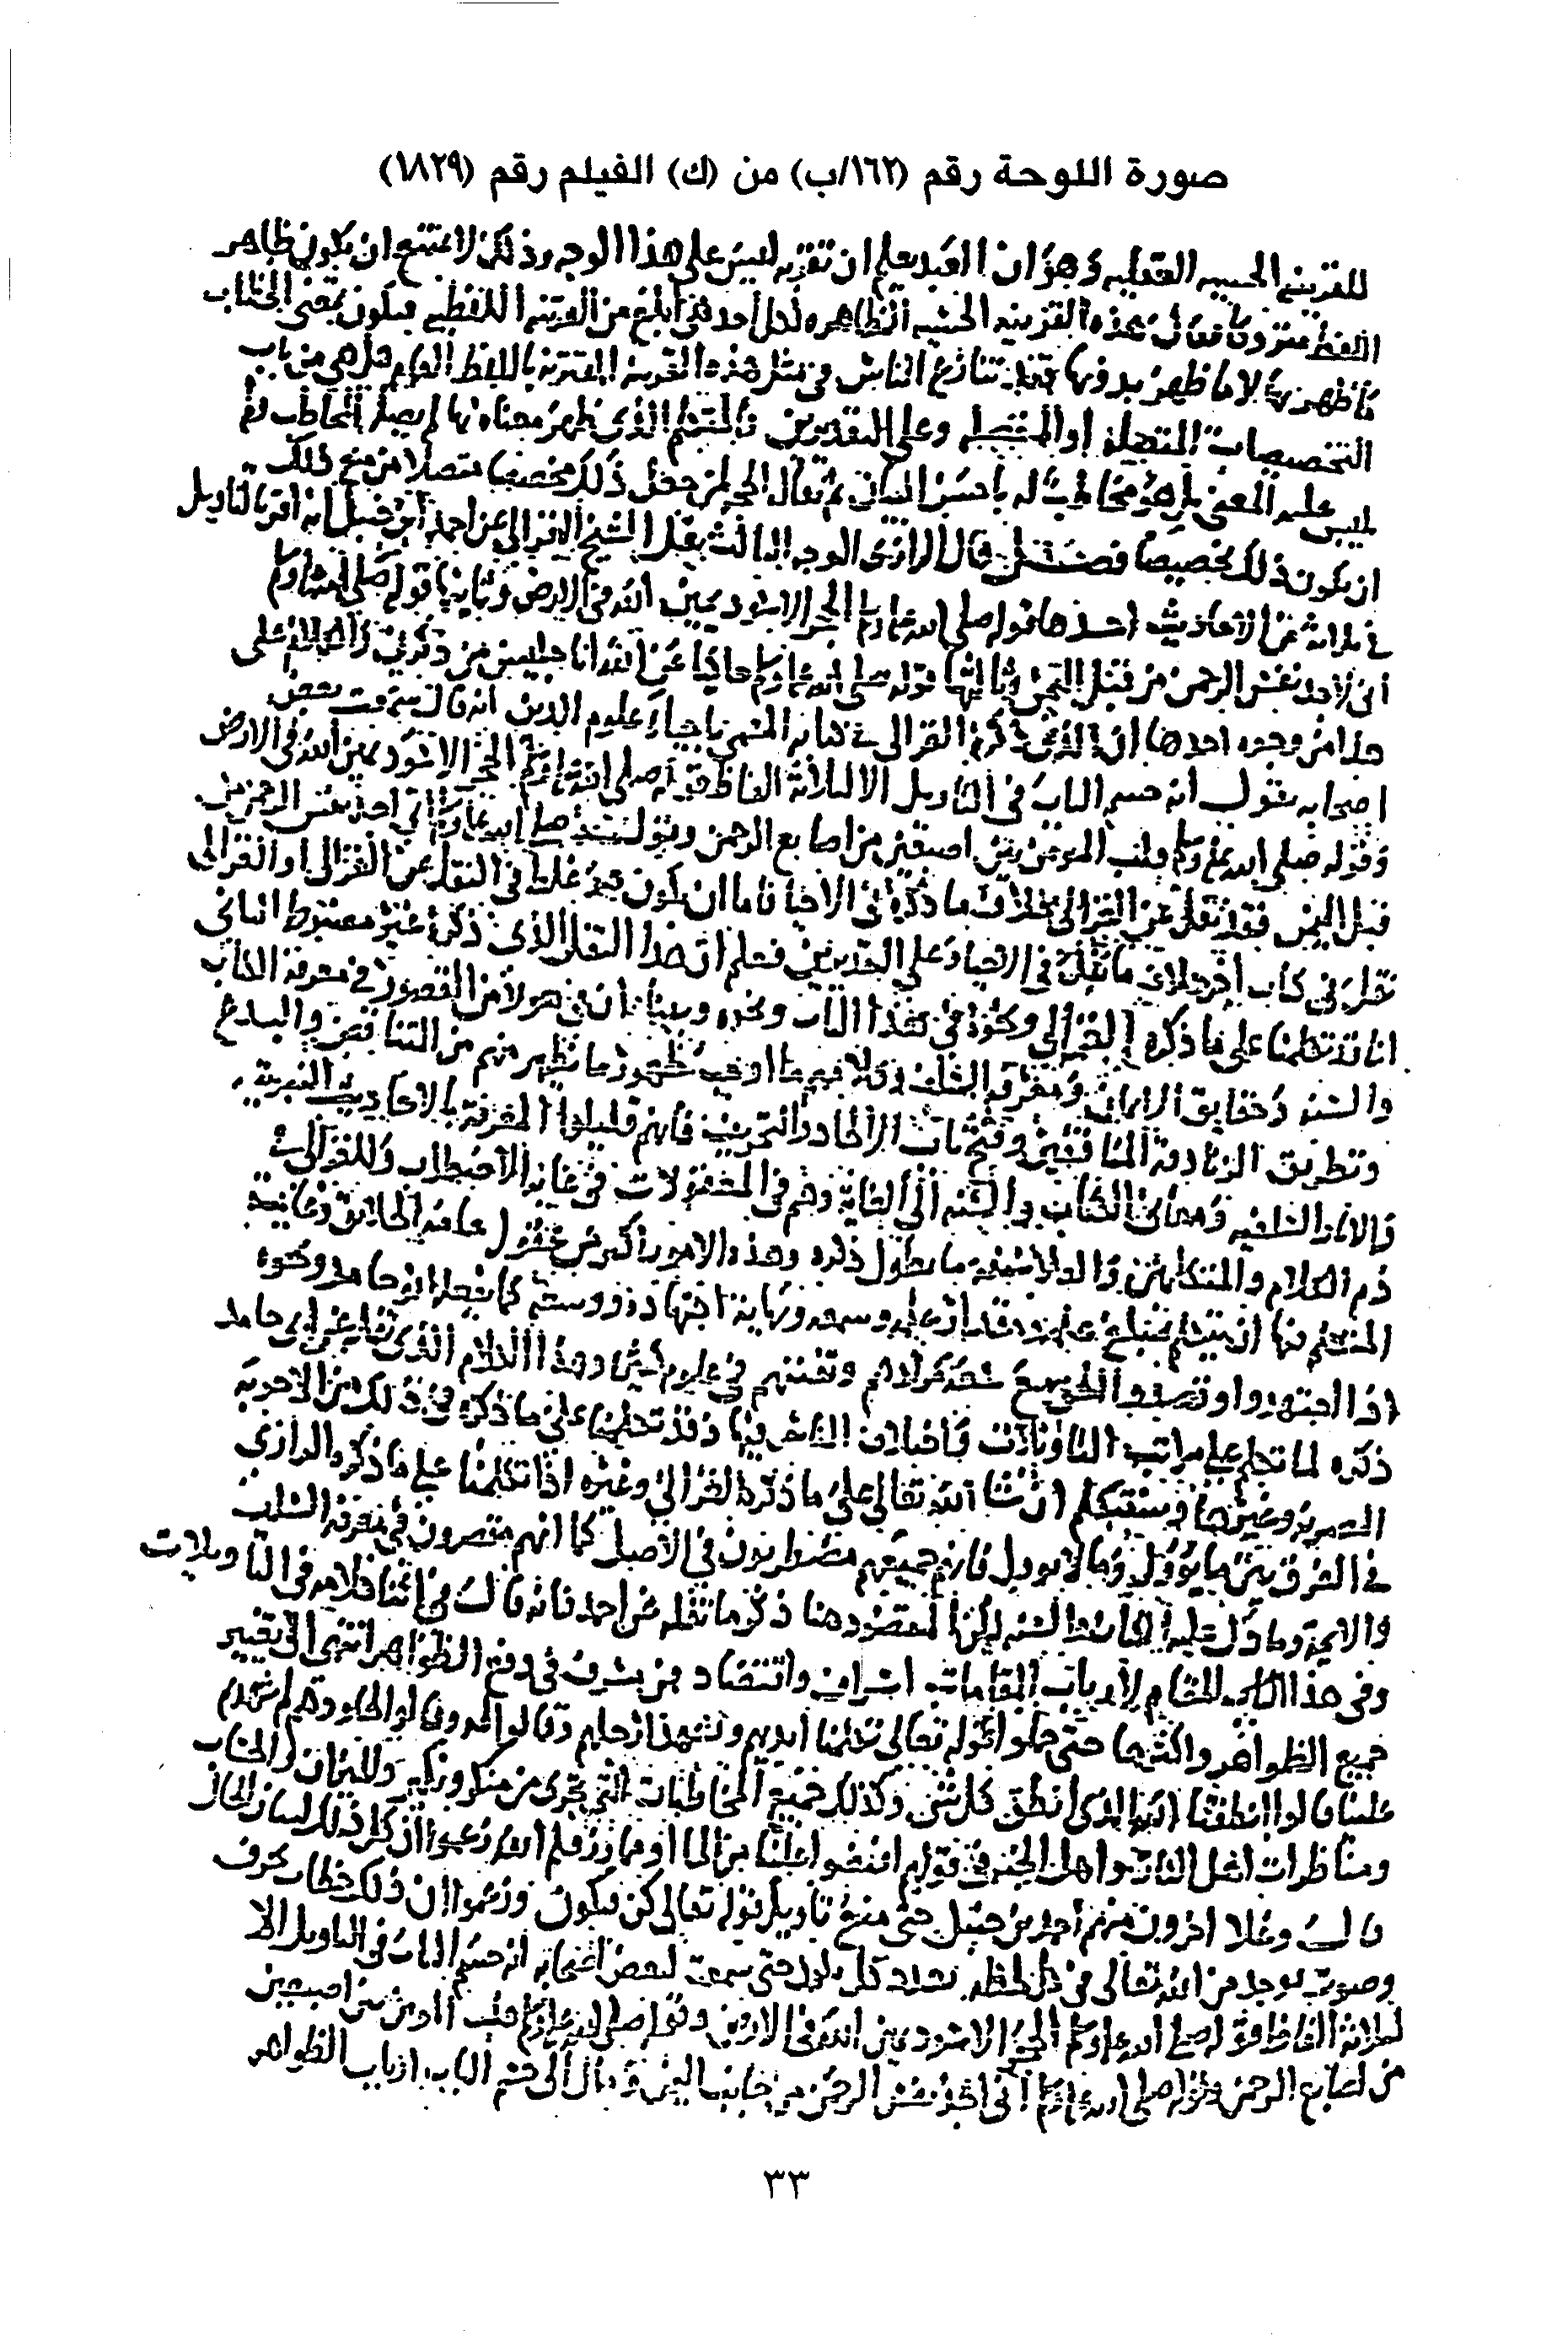 صورة اللوحة رقم (١٦٢/ب) من (ك) الفيلم رقم (١٨٢٩)
للقرينه الحسيه العقليه وهو ان العبد يعلم ان تقربه ليس على هذا الوجه وذلك لا يمتنع ان يكون ظاهر
اللفظ متروكا فقال بهذه القرينه الحسيه الظاهره لكل احد فهي ابلغ من القرينه اللفظيه فيكون معنى الخطاب
ما ظهر بها لا ما ظهر بدونها فقد تنازع الناس في مثل هذه القرينه المقترنه باللفظ العام هل هي من باب
التخصيصات المتصله او المنفصله وعلى التقديرين فالمتكلم الذي ظهر معناه بها لم يضل المخاطب ولم
يلبس عليه المعنى بل هو مخاطب له باحسن البيان ثم يقال الحجه لمن جعل ذلك مخصصا متصلا من منع ذلك
ان يكون ذلك تخصيصا فصـــل قال الرازي الوجه الثالث نقل الشيخ الغزالي عن احمد ابن حنبل انه اقر بالتاويل
في ثلاثة من الاحاديث احدها قوله صلى الله عليه وسلم الحجر الاسود يمين الله في الارض وثانيها قوله صلى الله عليه وسلم
اني لاجد نفس الرحمن من قبل اليمن وثالثها قوله صلى الله عليه وسلم حاكيا عن الله انا جليس من ذكرني والكلام على
هذا من وجوه احدها ان الذي ذكره الغزالي في كتابه المسمى باحياء علوم الدين انه قال سمعت بعض
اصحابه يقول انه حسم الباب في التاويل الا لثلاثة الفاظ قوله صلى الله عليه وسلم الحجر الاسود يمين الله في الارض
وقوله صلى الله عليه وسلم قلب المومن بين اصبعين من اصابع الرحمن وقوله صلى الله عليه وسلم اني اجد نفس الرحمن من
قبل اليمن فقد نقل عن الغزالي خلاف ما ذكره في الاحيا فاما ان يكون قد غلط في النقل عن الغزالي او الغزالي
نقل في كتاب اخر خلاف ما نقله في الاحيا وعلى التقديرين فعلم ان هذا النقل الذي ذكره غير مضبوط الثاني
انا قد تكلمنا على ما ذكره الغزالي ونحوه في هذا الباب ونحوه وبينا ان في هولاء من القصور في معرفة الكتاب
والسنه وحقايق الايمان ومعرفة السلف وكلامهم ما اوجب ظهور ما يظهر منهم من التناقض والبدع
وتطريق الزنادقة المنافقين وفتح باب الالحاد والتحريف فانهم قليلوا المعرفة بالاحاديث النبوية
والاثار السلفيه ومعاني الكتاب والسنه الى الغاية وهم في المعقولات في غاية الاضطراب وللغزالي في
ذم الكلام والمتكلمين والفلاسفه ما يطول ذكره وهذه الامور اكبر من عقول عامة الخلائق وغاية
المتكلم فيها ان يتكلم بمبلغ علمه ومقدار عقله وسمعه ونهاية اجتهاده ووسعه كما يفعله ابو حامد ونحوه
وهذا الكلام الذي نقله عن ابي حامد
ذكره لما تكلم على مراتب التاويلات واختلاف الناس فيها وقد تكلمنا على ما ذكره في ذلك من الاجوبه
المصريه وغيرها وسنتكلم ان شا الله تعالى على ما ذكره الغزالي وغيره اذا تكلمنا على ما ذكره الرازي
في الفرق بين ما يؤول وما لا يوول فانهم جميعهم مضطربون في الاصل كما انهم مقصرون في معرفة السلف
والايمة وما دل عليه الكتاب والسنه لكن المقصود هنا ذكر ما نقله عن احمد فانه قال في اثنا كلامه في التاويلات
وفي هذا المقام لارباب المقامات اسراف واقتصاد فمن مسرف في رفع الظواهر انتهى الى تغيير
جميع الظواهر واكثرها حتى حملوا قوله تعالى تكلمنا ايديهم وتشهد ارجلهم وقالوا لجلودهم لم شهدتم
علينا قالوا انطقنا الله الذي انطق كل شي وكذلك جميع المخاطبات التي تجري من منكر ونكير والميزان والحساب
ومناظرات اهل النار واهل الجنه في قولهم افيضوا علينا من الما او مما رزقكم الله زعموا ان كل ذلك لسان الحال
قال وغلا اخرون منهم احمد بن حنبل حتى منع تاويل قوله تعالى كن فيكون وزعموا ان ذلك خطاب بحرف
وصوت يوجد من الله تعالى في كل لحظه بعدد كل مكون حتى سمعت بعض اصحابه انه حسم الباب في التاويل الا
لثلاثة الفاظ قوله صلى الله عليه وسلم الحجر الاسود يمين الله في الارض وقوله صلى الله عليه وسلم قلب المومن بين اصبعين
من اصابع الرحمن وقوله صلى الله عليه وسلم اني اجد نفس الرحمن من جانب اليمن ومال الى حسم الباب ارباب الظواهر
٣٣